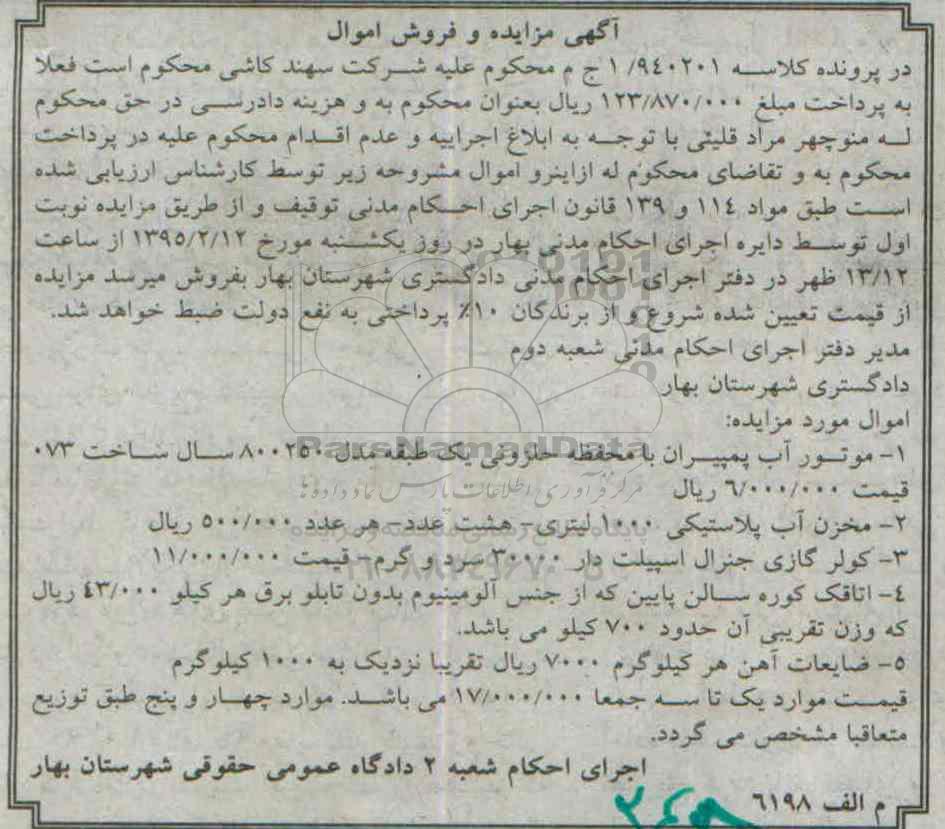 آگهی مزایده و فروش اموال
در پرونده کلاسه ۱/۹۴۰۲۰۱ ج م محکوم علیه شرکت سهند کاشی محکوم است فعلا
به پرداخت مبلغ ۱۲۳/۸۷۰/۰۰۰ ریال بعنوان محکوم به و هزینه دادرسی در حق محکوم
له منوچهر مراد قلیئی با توجه به ابلاغ اجراییه و عدم اقدام محکوم علیه در پرداخت
محکوم به و تقاضای محکوم له ازاینرو اموال مشروحه زیر توسط کارشناس ارزیابی شده
است طبق مواد ۱۱۴ و ۱۳۹ قانون اجرای احکام مدنی توقیف و از طریق مزایده نوبت
اول توسط دایره اجرای احکام مدنی بهار در روز یکشنبه مورخ ۱۳۹۵/۲/۱۲ از ساعت
۱۳/۱۲ ظهر در دفتر اجرای احکام مدنی دادگستری شهرستان بهار بفروش میرسد مزایده
از قیمت تعیین شده شروع و از برندگان ۱۰٪ پرداختی به نفع دولت ضبط خواهد شد.
مدیر دفتر اجرای احکام مدنی شعبه دوم
دادگستری شهرستان بهار
اموال مورد مزایده:
ParsNamadData
۱- موتور آب پمپیران با محفظه حلزونی یک طبقه مدل ۸۰۰۲۵۰ سال ساخت ۰۷۳
قیمت ۶/۰۰۰/۰۰۰ ریال
مرکز فرآوری اطلاعات پارس نماد داده ها
۲- مخزن آب پلاستیکی ۱۰۰۰ لیتری- هشت عدد- هر عدد ۵۰۰/۰۰۰ ریال
۳- کولر گازی جنرال اسپیلت دار ۳۰۰۰۰ سرد و گرم- قیمت ۱۱/۰۰۰/۰۰۰
۴- اتاقک کوره سالن پایین که از جنس آلومینیوم بدون تابلو برق هر کیلو ۴۳/۰۰۰ ریال
که وزن تقریبی آن حدود ۷۰۰ کیلو می باشد.
۵- ضایعات آهن هر کیلوگرم ۷۰۰۰ ریال تقریبا نزدیک به ۱۰۰۰ کیلوگرم
قیمت موارد یک تا سه جمعا ۱۷/۰۰۰/۰۰۰ می باشد. موارد چهار و پنج طبق توزیع
متعاقبا مشخص می گردد.
اجرای احکام شعبه ۲ دادگاه عمومی حقوقی شهرستان بهار
م الف ۶۱۹۸